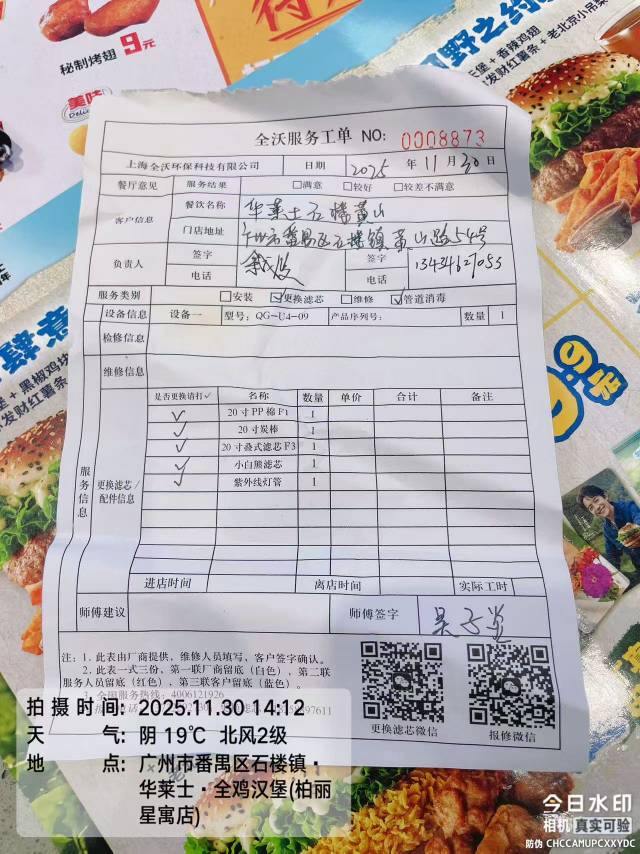 秘制烤翅 9元
美味
全沃服务工单 NO: 0008873
上海全沃环保科技有限公司 日期 2025 年 11 月 30 日
餐厅意见 服务结果 □满意 □较好 □较差不满意
客户信息 餐饮名称 华莱士石楼黄山
门店地址 广州市番禺区石楼镇黄山路54号
负责人 签字 签字
电话 电话 13434627053
服务类别 □安装 ☑更换滤芯 □维修 ☑管道消毒
设备信息 设备一 型号: QG-U4-09 产品序列号: 数量 1
检修信息
维修信息
服务信息
更换滤芯/配件信息
是否更换请打✓ 名称 数量 单价 合计 备注
✓ 20寸PP棉F1 1
✓ 20寸炭棒 1
✓ 20寸叠式滤芯F3 1
✓ 小白熊滤芯 1
✓ 紫外线灯管 1
进店时间 离店时间 实际工时
师傅建议 师傅签字
注: 1. 此表由厂商提供, 维修人员填写, 客户签字确认。
2. 此表一式三份, 第一联厂商留底(白色), 第二联
服务人员留底(红色), 第三联客户留底(蓝色)。
3. 全国服务热线: 4006121926
更换滤芯微信 报修微信
拍摄时间: 2025.11.30 14:12
天气: 阴 19℃ 北风2级
地点: 广州市番禺区石楼镇·
华莱士·全鸡汉堡(柏丽
星寓店)
今日水印
相机 真实可验
防伪 CHCCAMUPCXXYDC